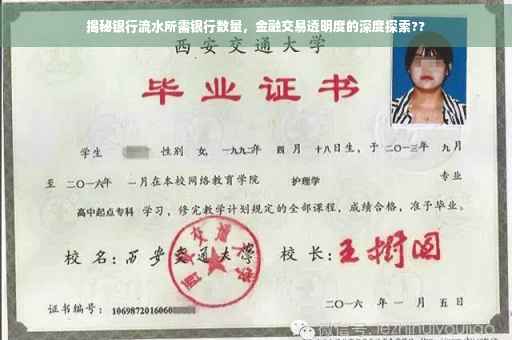 揭秘银行流水所需银行数量，金融交易透明度的深度探索??
西安交通大学
毕业证书
学生 性别 女, 一九九二年 四月 十八日生, 于二〇一三年 九月
至 二〇一六年 一月在本校网络教育学院 护理学 专业
高中起点专科 学习, 修完教学计划规定的全部课程, 成绩合格, 准予毕业。
校名: 西安交通大学 校长: 王树国
西安交通大学
证书编号: 1069872016060
二〇一六年 一月 五日
微信号: jezhihuiyoujiao